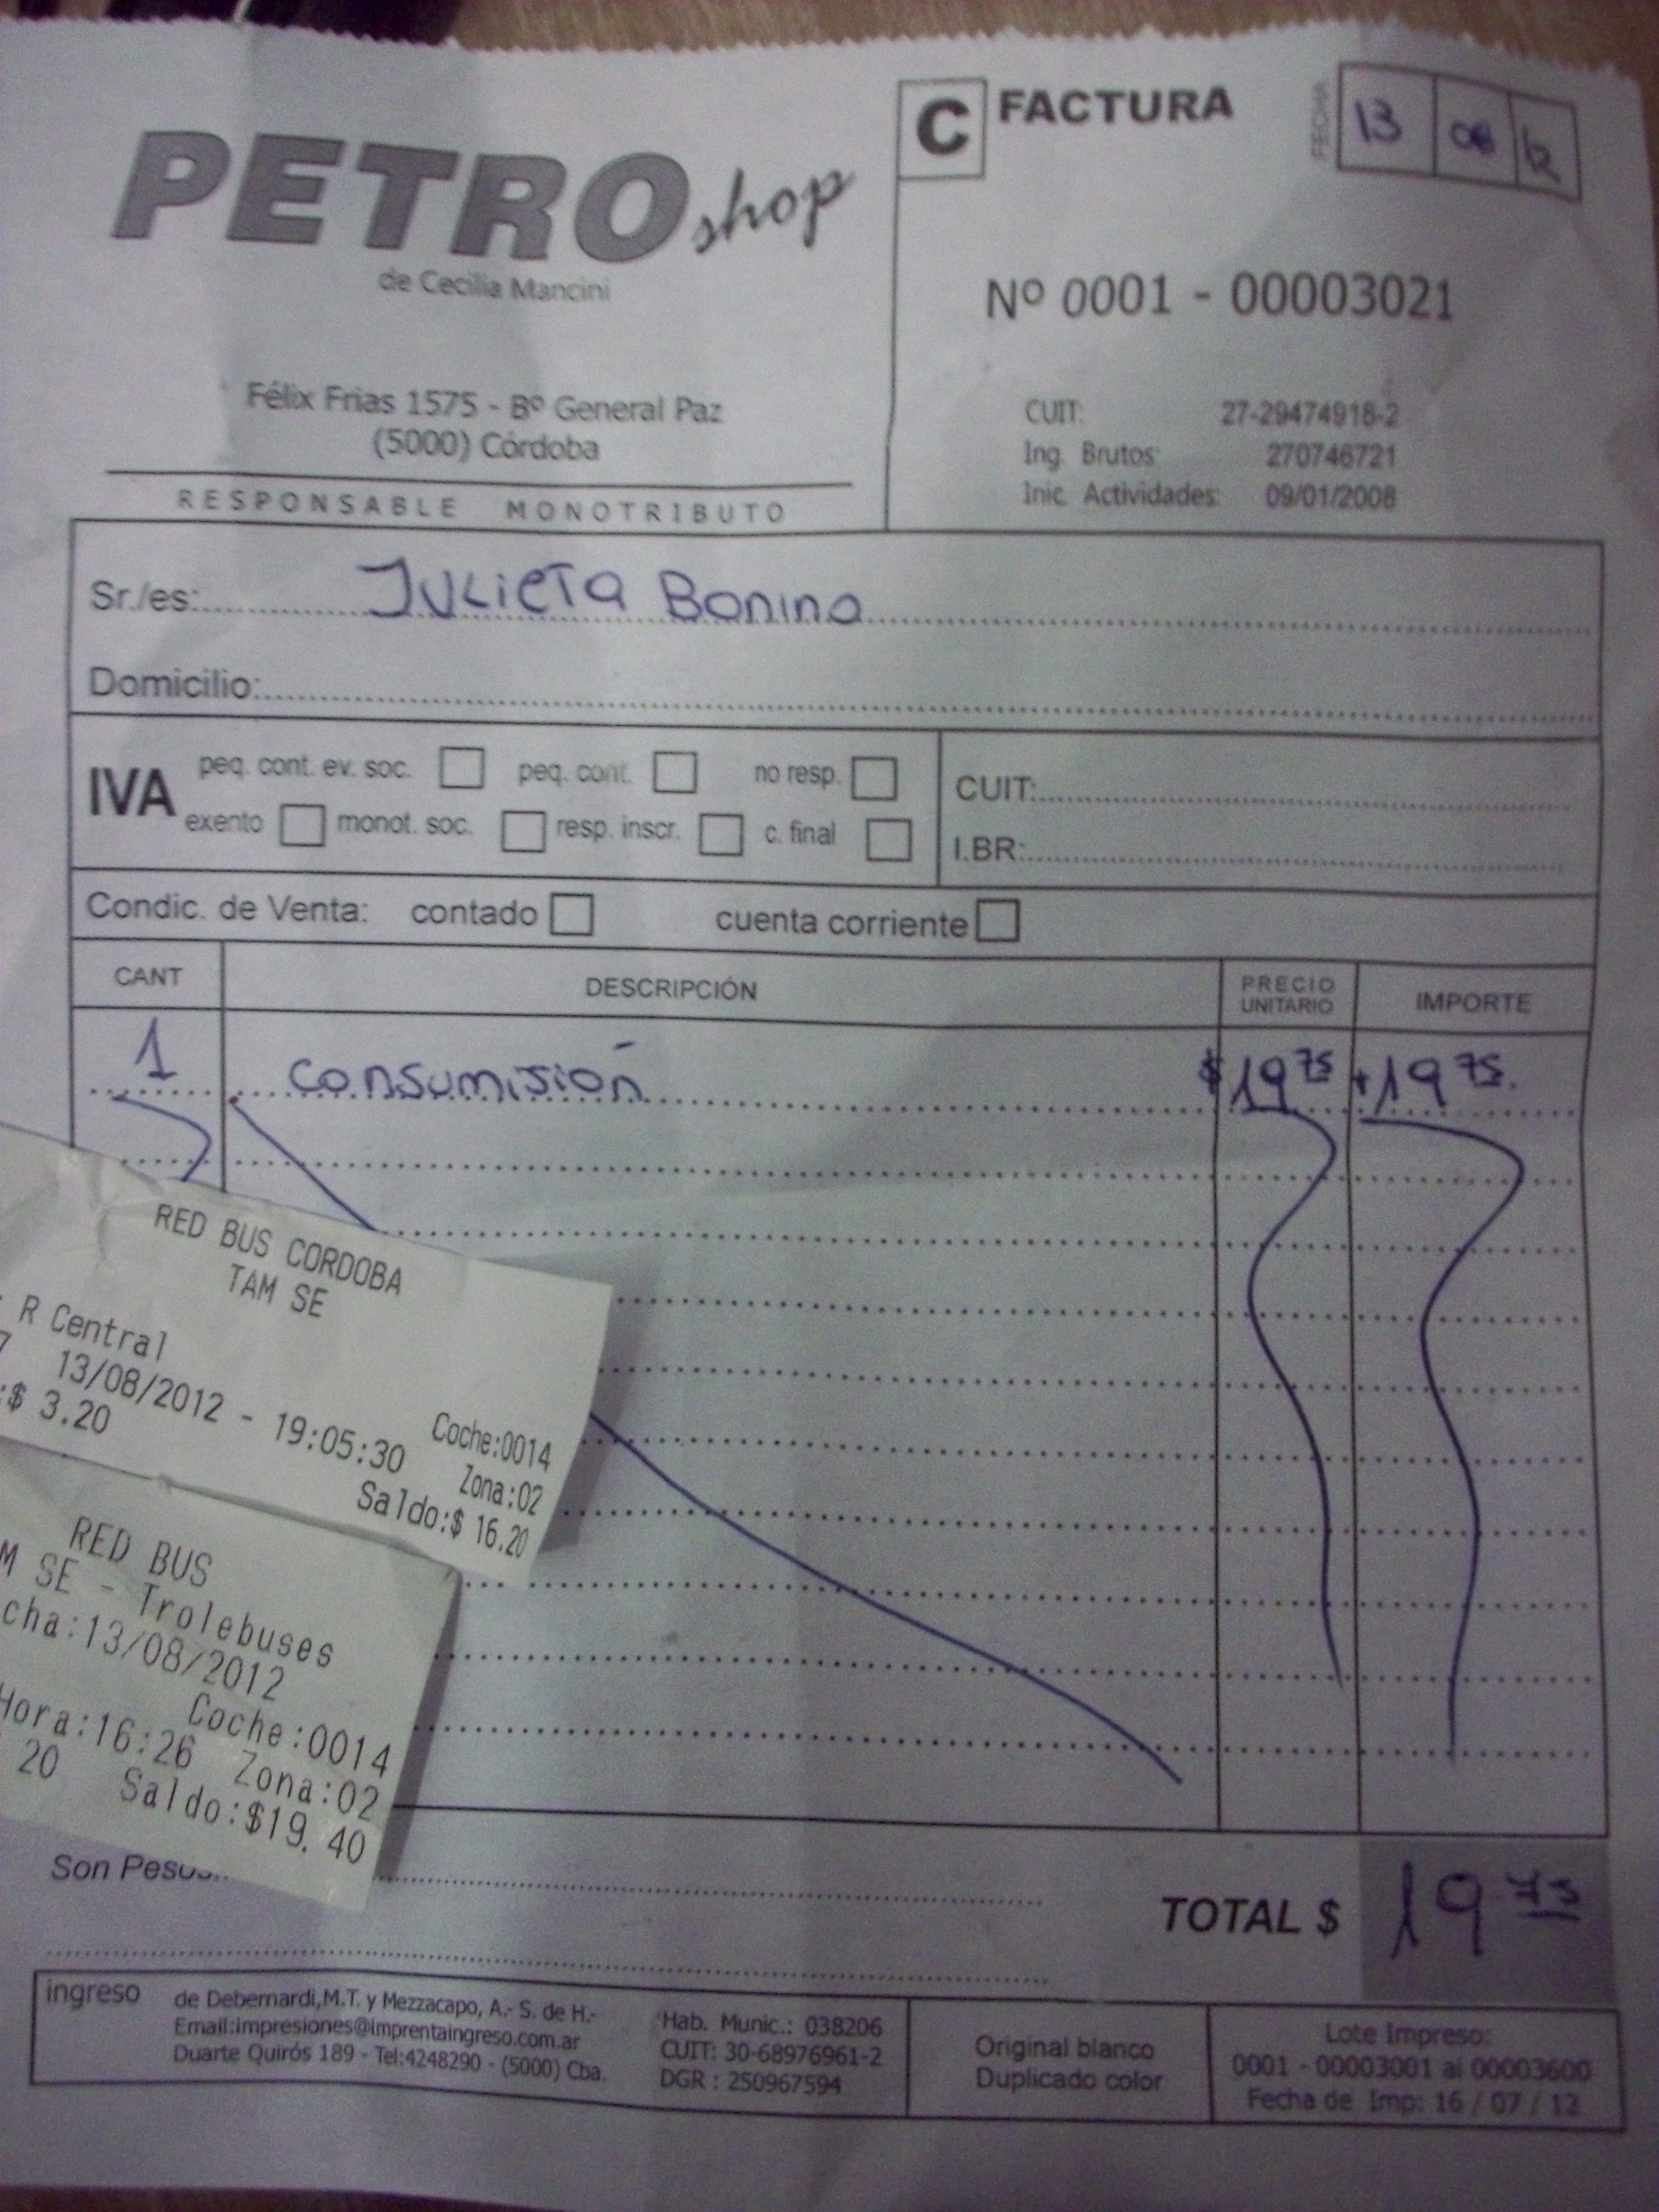 PETRO shop
de Cecilia Mancini
Félix Frias 1575 - Bº General Paz
(5000) Córdoba
RESPONSABLE MONOTRIBUTO
C FACTURA
FECHA 13 08 12
Nº 0001 - 00003021
CUIT: 27-29474918-2
Ing. Brutos: 270746721
Inic. Actividades: 09/01/2008
Sr./es: Julieta Bonino
Domicilio:
IVA peq. cont. ev. soc. peq. cont. no resp.
exento monot. soc. resp. inscr. c. final
CUIT:
I.BR:
Condic. de Venta: contado cuenta corriente
CANT DESCRIPCIÓN PRECIO UNITARIO IMPORTE
1 consumisión $19 75 $19 75.
RED BUS CORDOBA
TAM SE
R Central
Coche:0014
7 13/08/2012 - 19:05:30 Zona:02
:$ 3.20 Saldo:$ 16.20
RED BUS
M SE - Trolebuses
cha:13/08/2012
Coche:0014
Hora:16:26 Zona:02
20 Saldo:$19.40
Son Pesos:
TOTAL $ 19 75
ingreso de Debernardi,M.T. y Mezzacapo, A.- S. de H.-
Email:impresiones@imprentaingreso.com.ar
Duarte Quirós 189 - Tel:4248290 - (5000) Cba.
Hab. Munic.: 038206
CUIT: 30-68976961-2
DGR : 250967594
Original blanco
Duplicado color
Lote Impreso:
0001 - 00003001 al 00003600
Fecha de Imp: 16 / 07 / 12